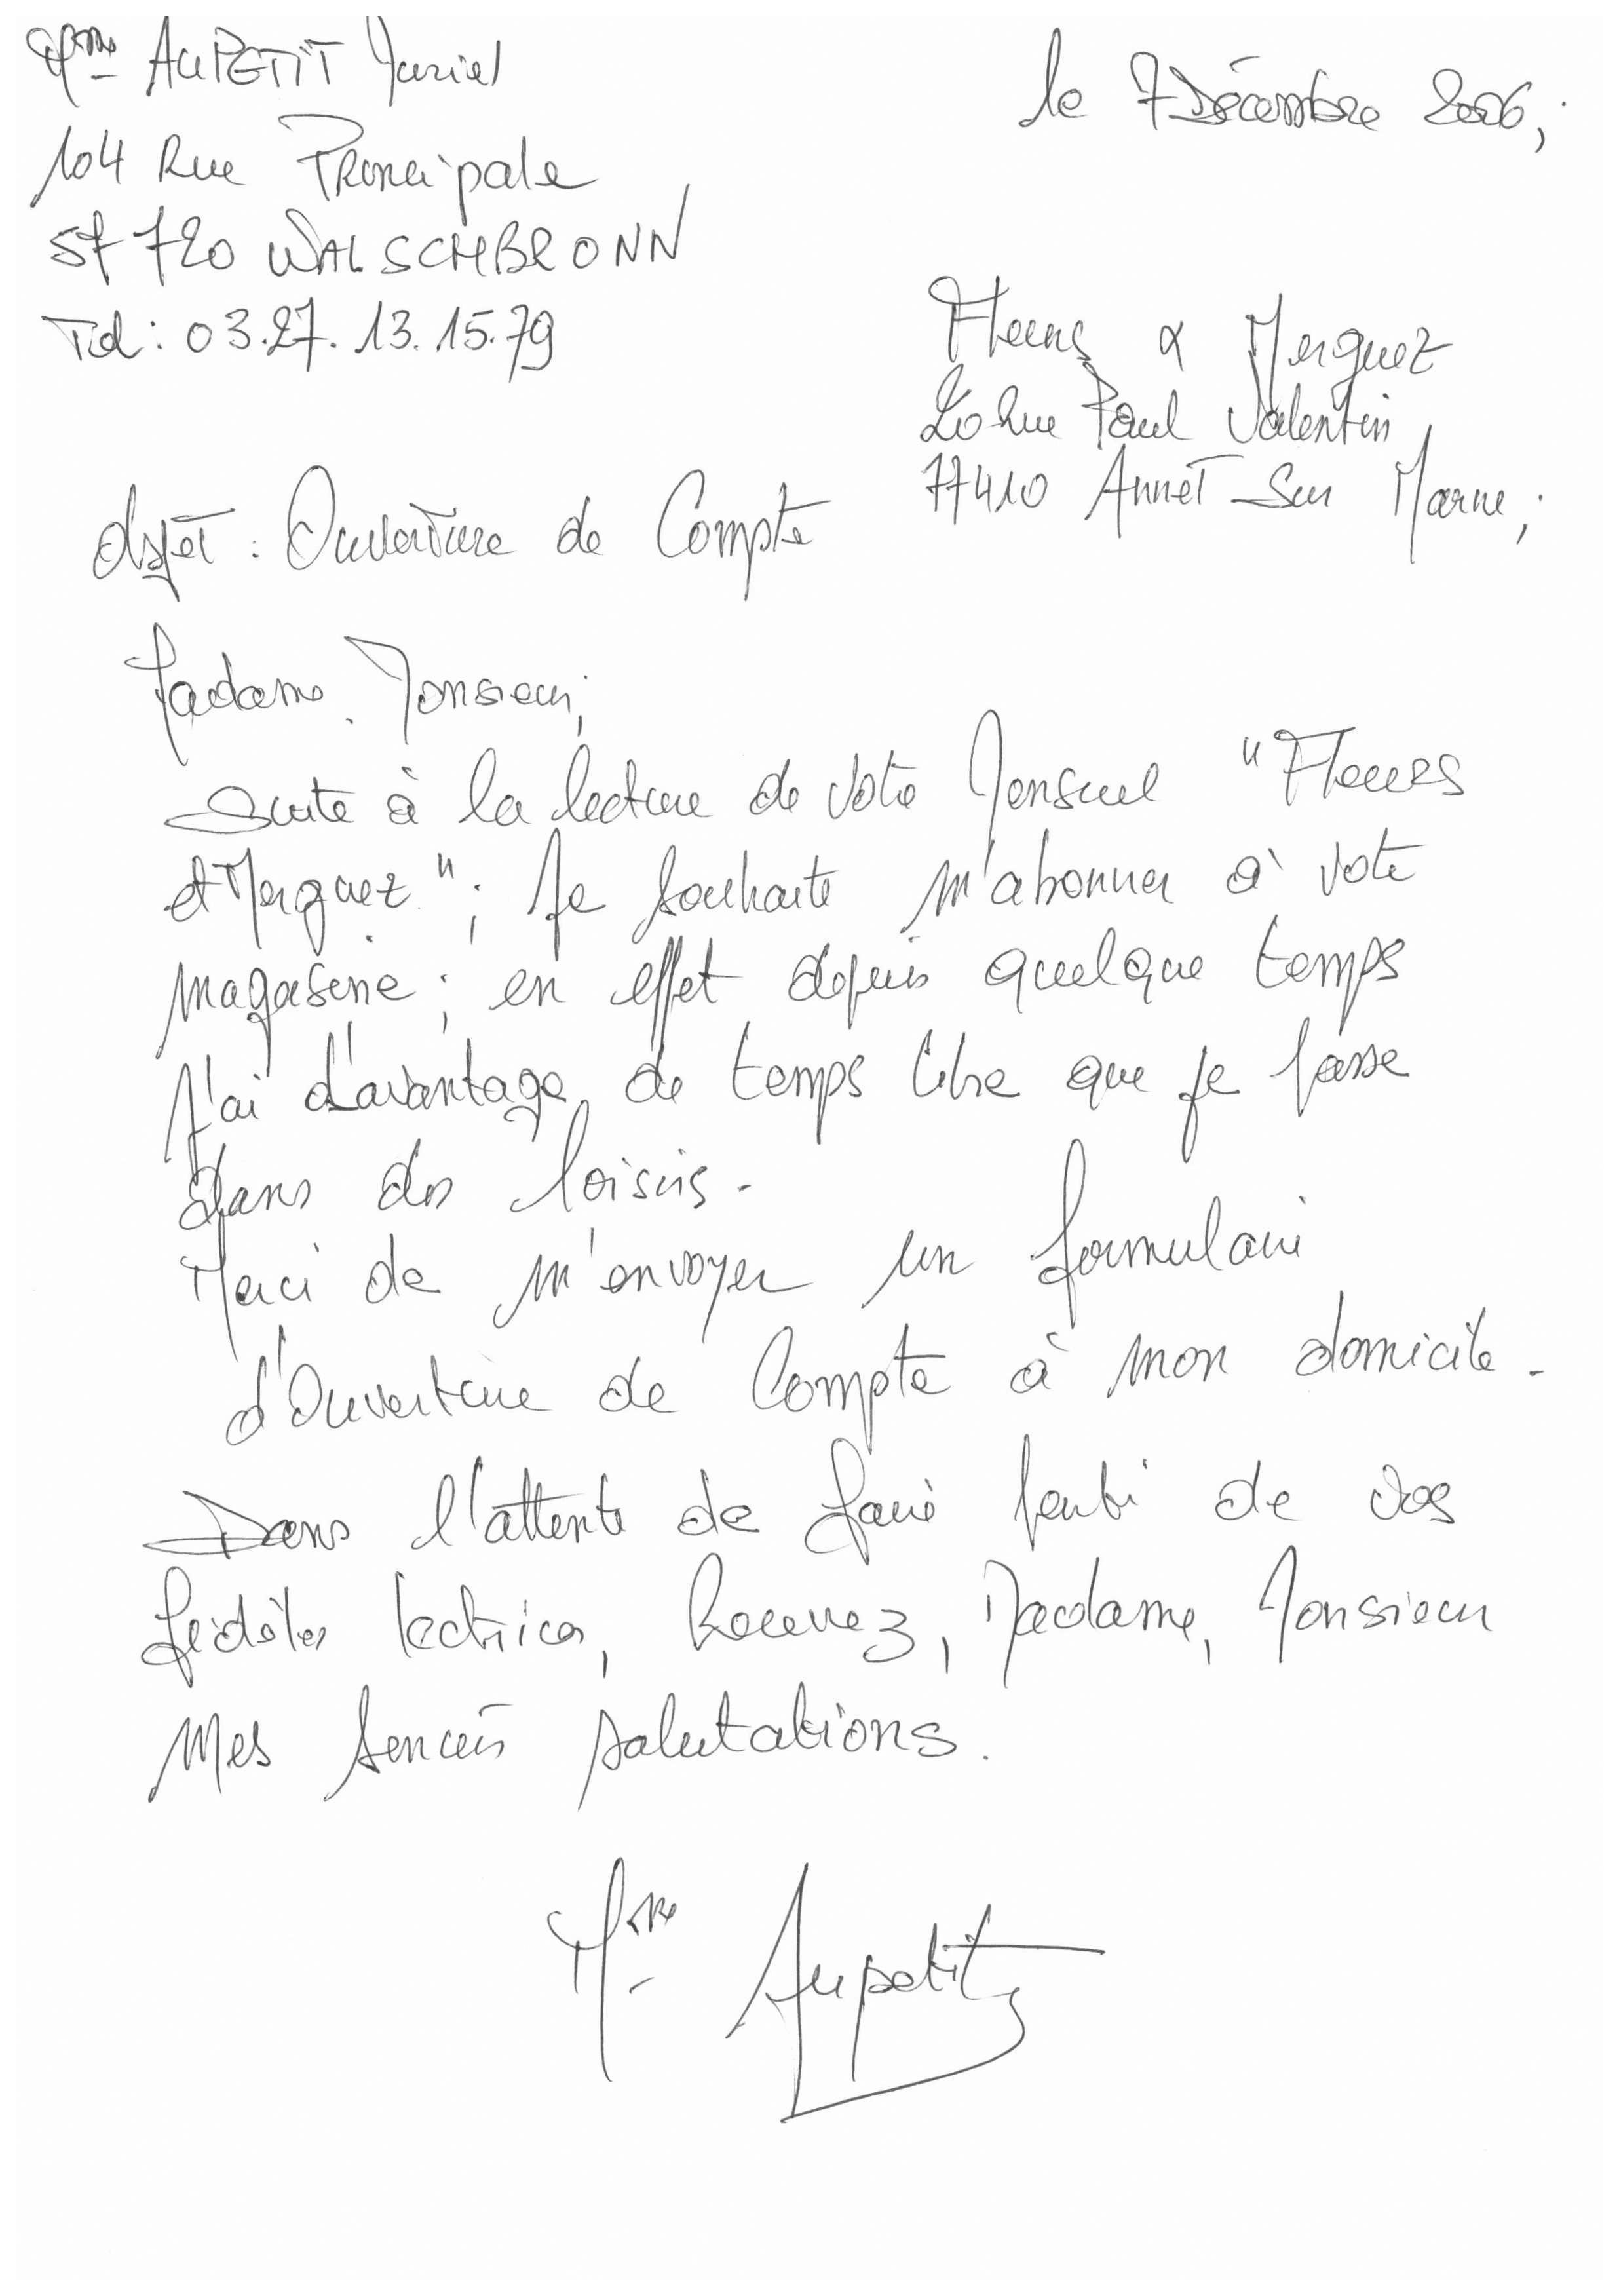 Mme AUPETIT Muriel
le 7 Décembre 2006,
104 Rue Principale
57720 WALSCHBRONN
Tel : 03.27.13.15.79
Fleurs & Merguez
20 Rue Paul Valentin
77410 Annet Sur Marne,
Objet : Ouverture de Compte
Madame, Monsieur,
Suite à la lecture de votre Mensuel "Fleurs
et Merguez" ; je souhaite m'abonner à votre
magasine ; en effet depuis quelque temps
j'ai d'avantage de temps libre que je passe
dans des loisirs.
Merci de m'envoyer un formulaire
d'Ouverture de Compte à mon domicile.
Dans l'attente de faire partie de vos
fidèles lectrices, Recevez, Madame, Monsieur
Mes sincères salutations.
Mme Aupetit